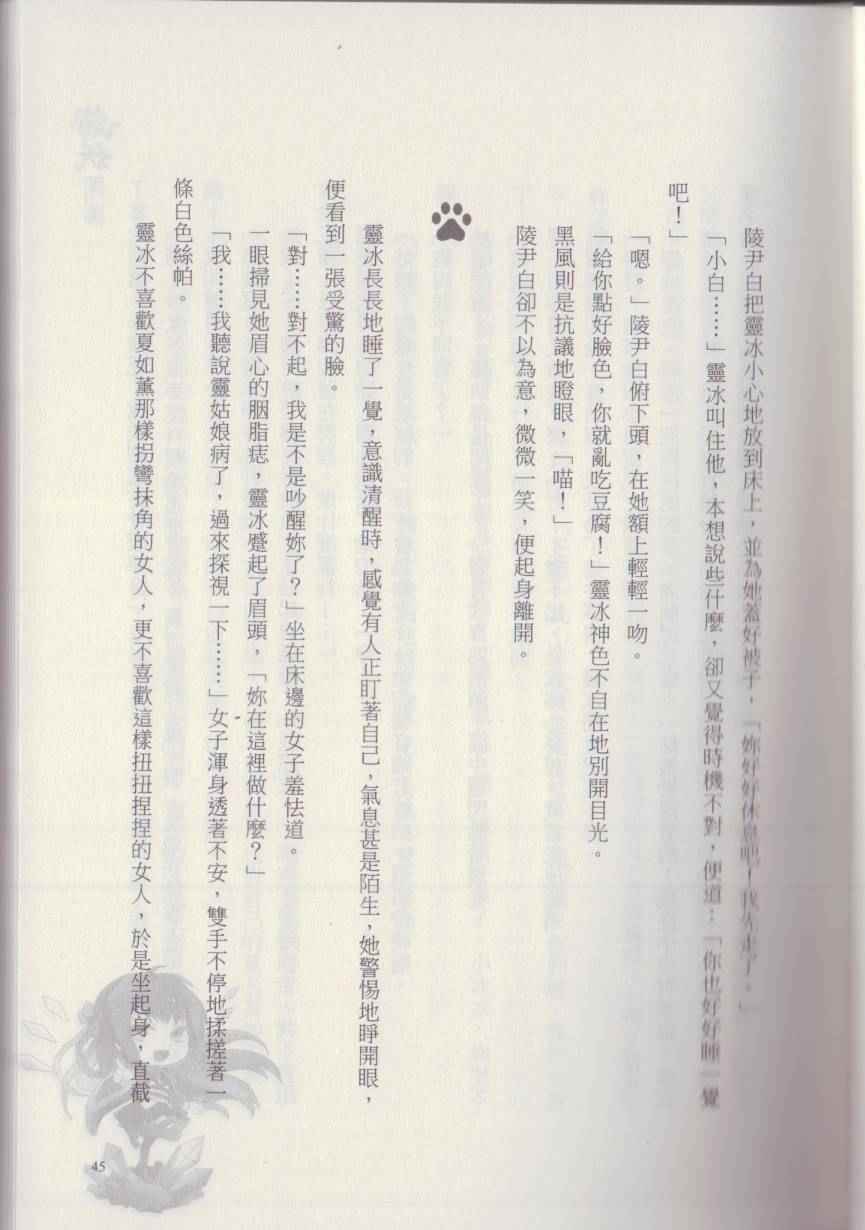 陵尹白把靈冰小心地放到床上，並為她蓋好被子，「妳好好休息吧！我先走了。」
「小白……」靈冰叫住他，本想說些什麼，卻又覺得時機不對，便道：「你也好好睡一覺
吧！」
「嗯。」陵尹白俯下頭，在她額上輕輕一吻。
「給你點好臉色，你就亂吃豆腐！」靈冰神色不自在地別開目光。
黑風則是抗議地瞪眼，「喵！」
陵尹白卻不以為意，微微一笑，便起身離開。
靈冰長長地睡了一覺，意識清醒時，感覺有人正盯著自己，氣息甚是陌生，她警惕地睜開眼，
便看到一張受驚的臉。
「對……對不起，我是不是吵醒妳了？」坐在床邊的女子羞怯道。
一眼掃見她眉心的胭脂痣，靈冰蹙起了眉頭，「妳在這裡做什麼？」
「我……我聽說靈姑娘病了，過來探視一下……」女子渾身透著不安，雙手不停地揉搓著一
條白色絲帕。
靈冰不喜歡夏如薰那樣拐彎抹角的女人，更不喜歡這樣扭扭捏捏的女人，於是坐起身，直截
45